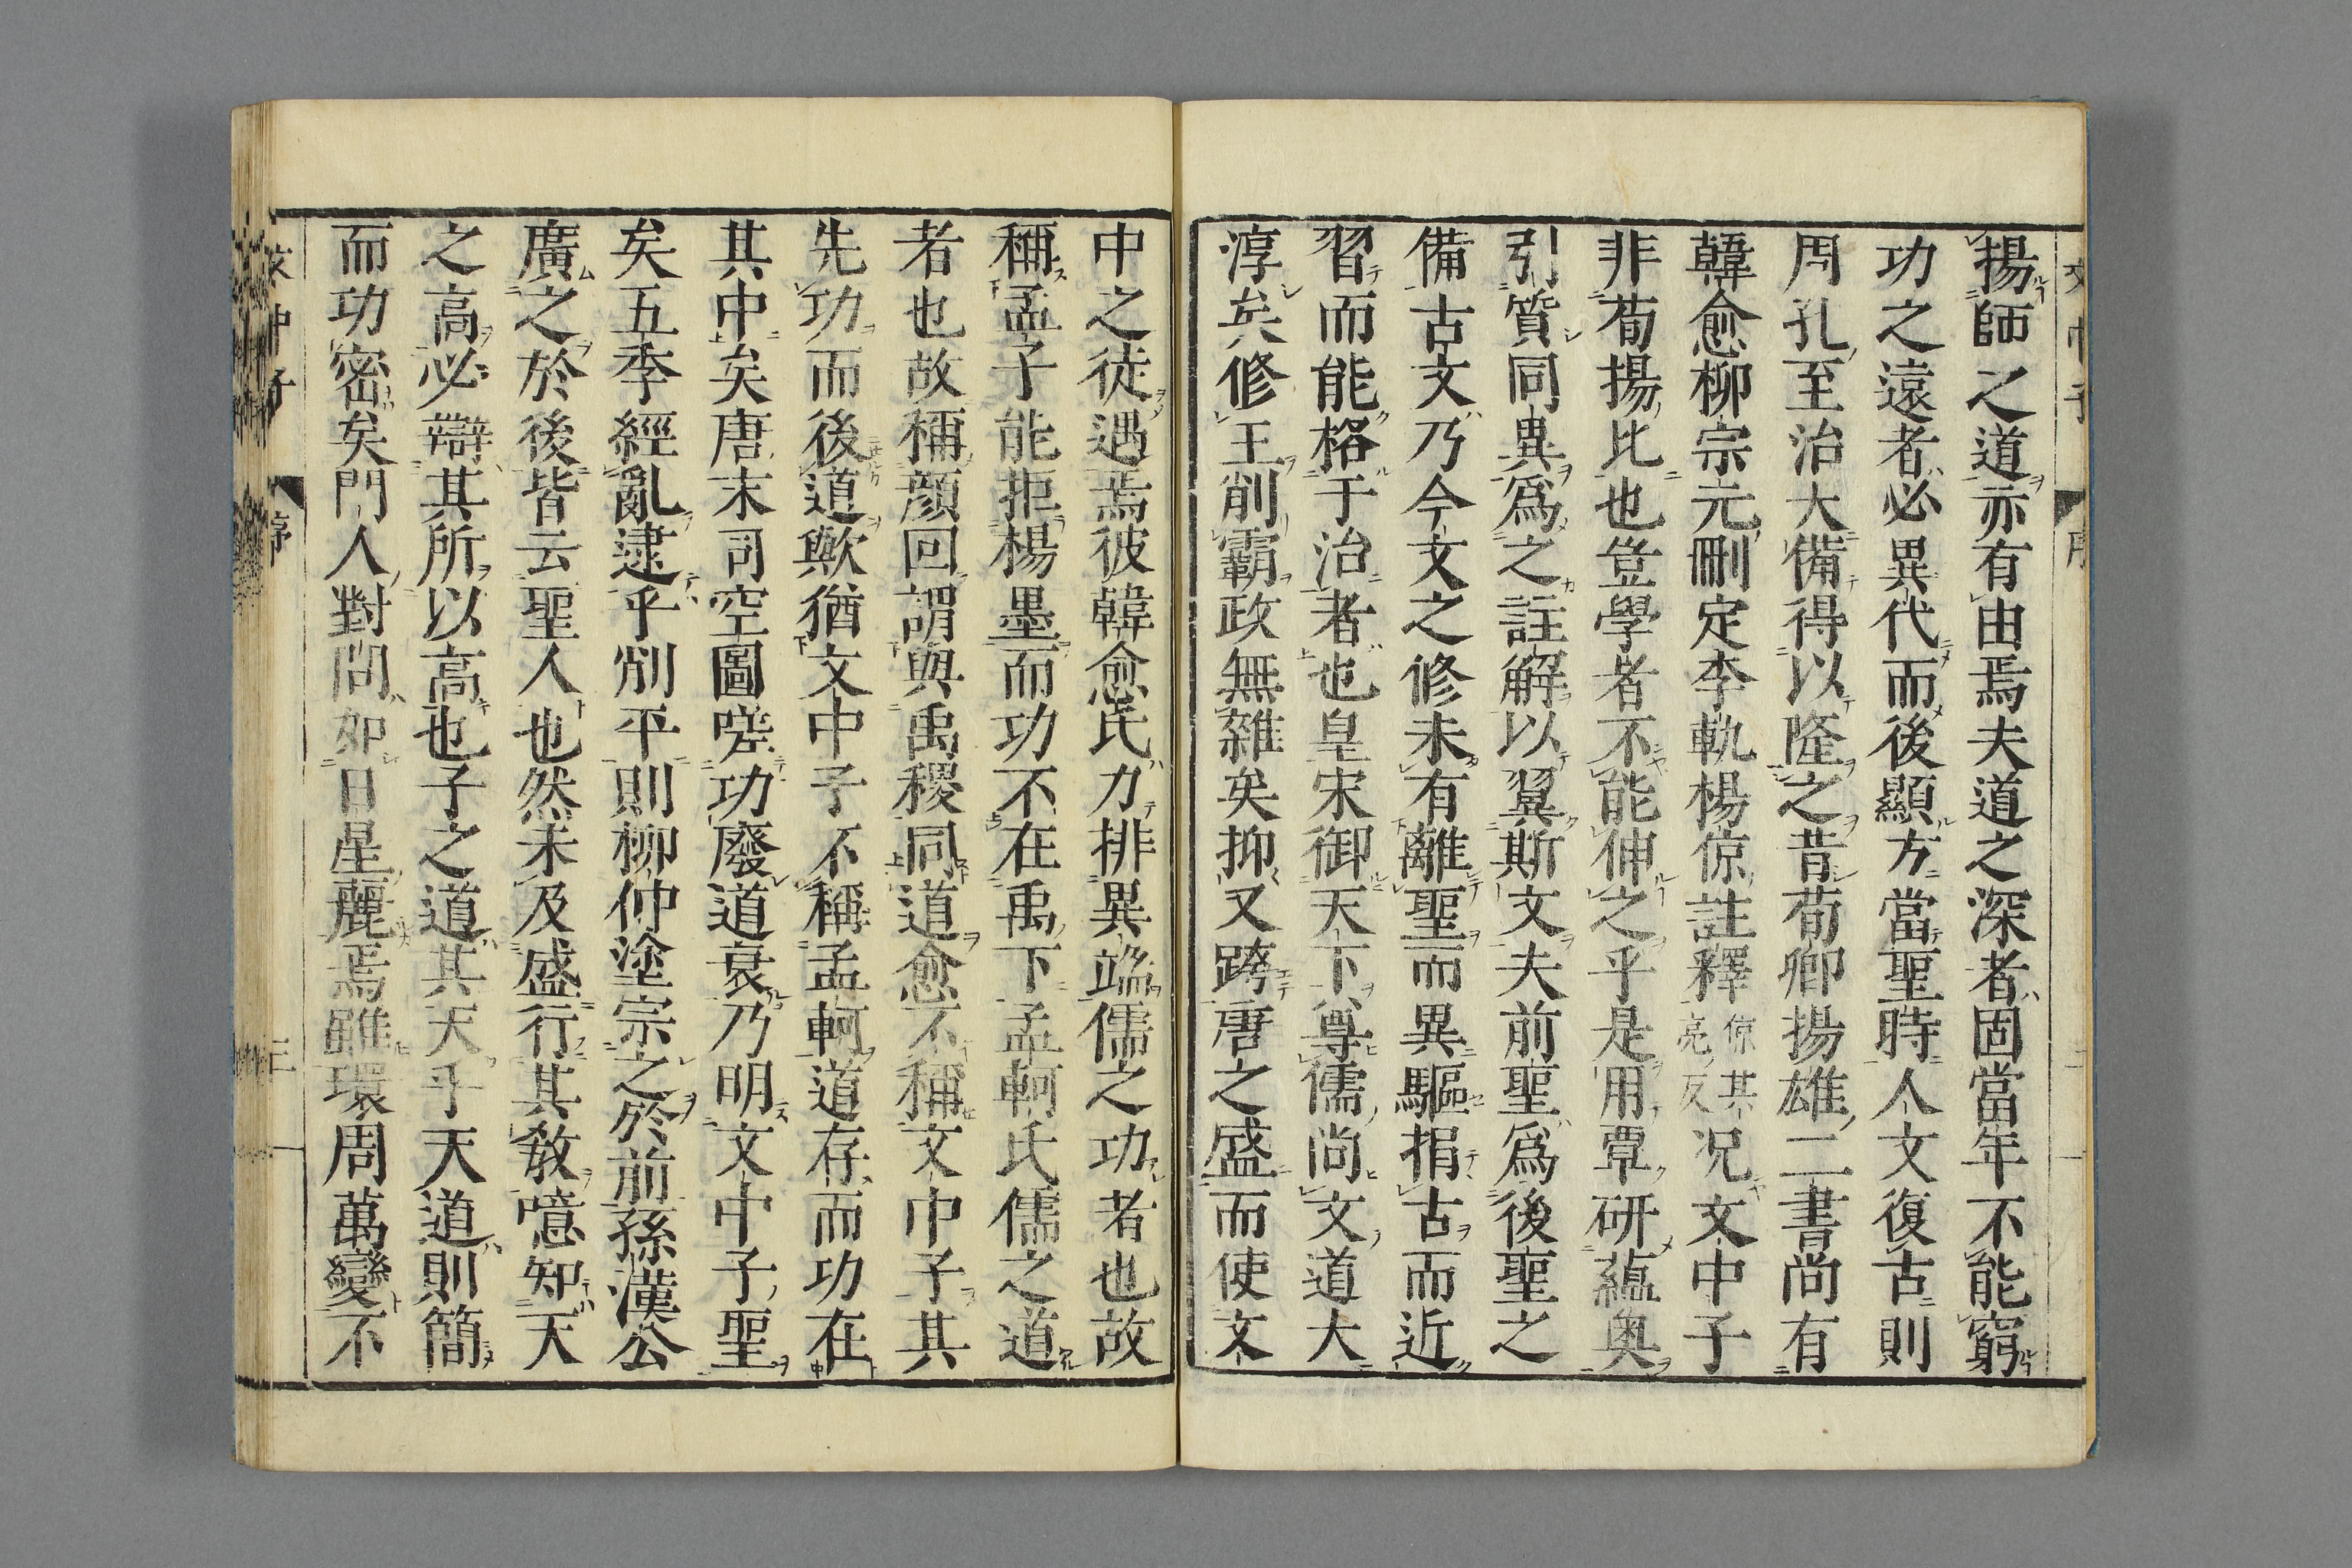 揚師之道亦有由焉夫道之深者固當年不能窮
功之遠者必異代而後顯方當聖時人文復古則
周孔至治大備得以隆之昔荀卿揚雄二書尚有
韓愈柳宗元刪定李軌楊倞註釋倞其亮反况文中子
非荀揚比也豈學者不能伸之乎是用覃研蘊奧
引質同異爲之註解以翼斯文夫前聖爲後聖之
備古文乃今文之修未有離聖而異驅捐古而近
習而能格于治者也皇宋御天下尊儒尚文道大
淳矣修王削霸政無雜矣抑又跨唐之盛而使文
中之徒遇焉彼韓愈氏力排異端儒之功者也故
稱孟子能拒楊墨而功不在禹下孟軻氏儒之道
者也故稱顔回謂與禹稷同道愈不稱文中子其
先功而後道歟猶文中子不稱孟軻道存而功在
其中矣唐末司空圖嗟功廢道衰乃明文中子聖
矣五季經亂逮乎削平則柳仲塗宗之於前孫漢公
廣之於後皆云聖人也然未及盛行其敎噫知天
之高必辯其所以高也子之道其天乎天道則簡
而功密矣門人對問如日星麗焉雖環周萬變不
文中子
序
三